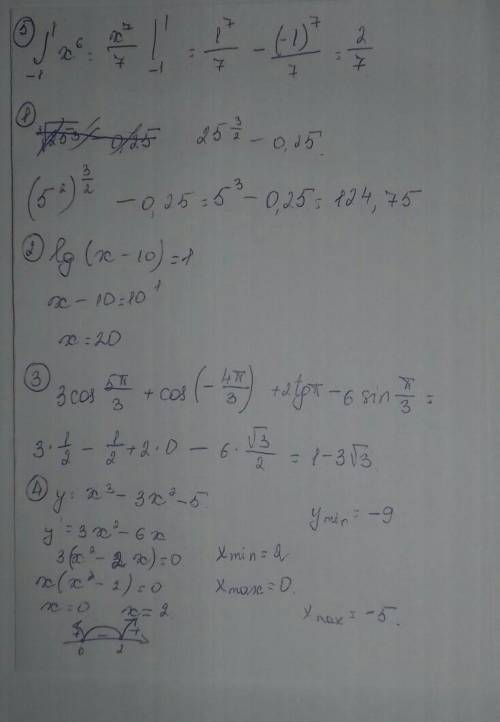 ⑤ ∫₋₁¹ x⁶ = x⁷/7 |₋₁¹ = 1⁷/7 - (-1)⁷/7 = 2/7
① 25^(3/2) - 0,25.
(5²)^(3/2) - 0,25 = 5³ - 0,25 = 124,75
② lg (x - 10) = 1
x - 10 = 10¹
x = 20
③ 3cos 5π/3 + cos(-4π/3) + 2tgπ - 6 sin π/3 =
3·1/2 - 1/2 + 2·0 - 6·√3/2 = 1 - 3√3
④ y = x³ - 3x² - 5.
y' = 3x² - 6x
3(x² - 2x) = 0
x(x² - 2) = 0
x = 0 x = 2
0 2
x min = 2
x max = 0.
y min = -9
y max = -5.